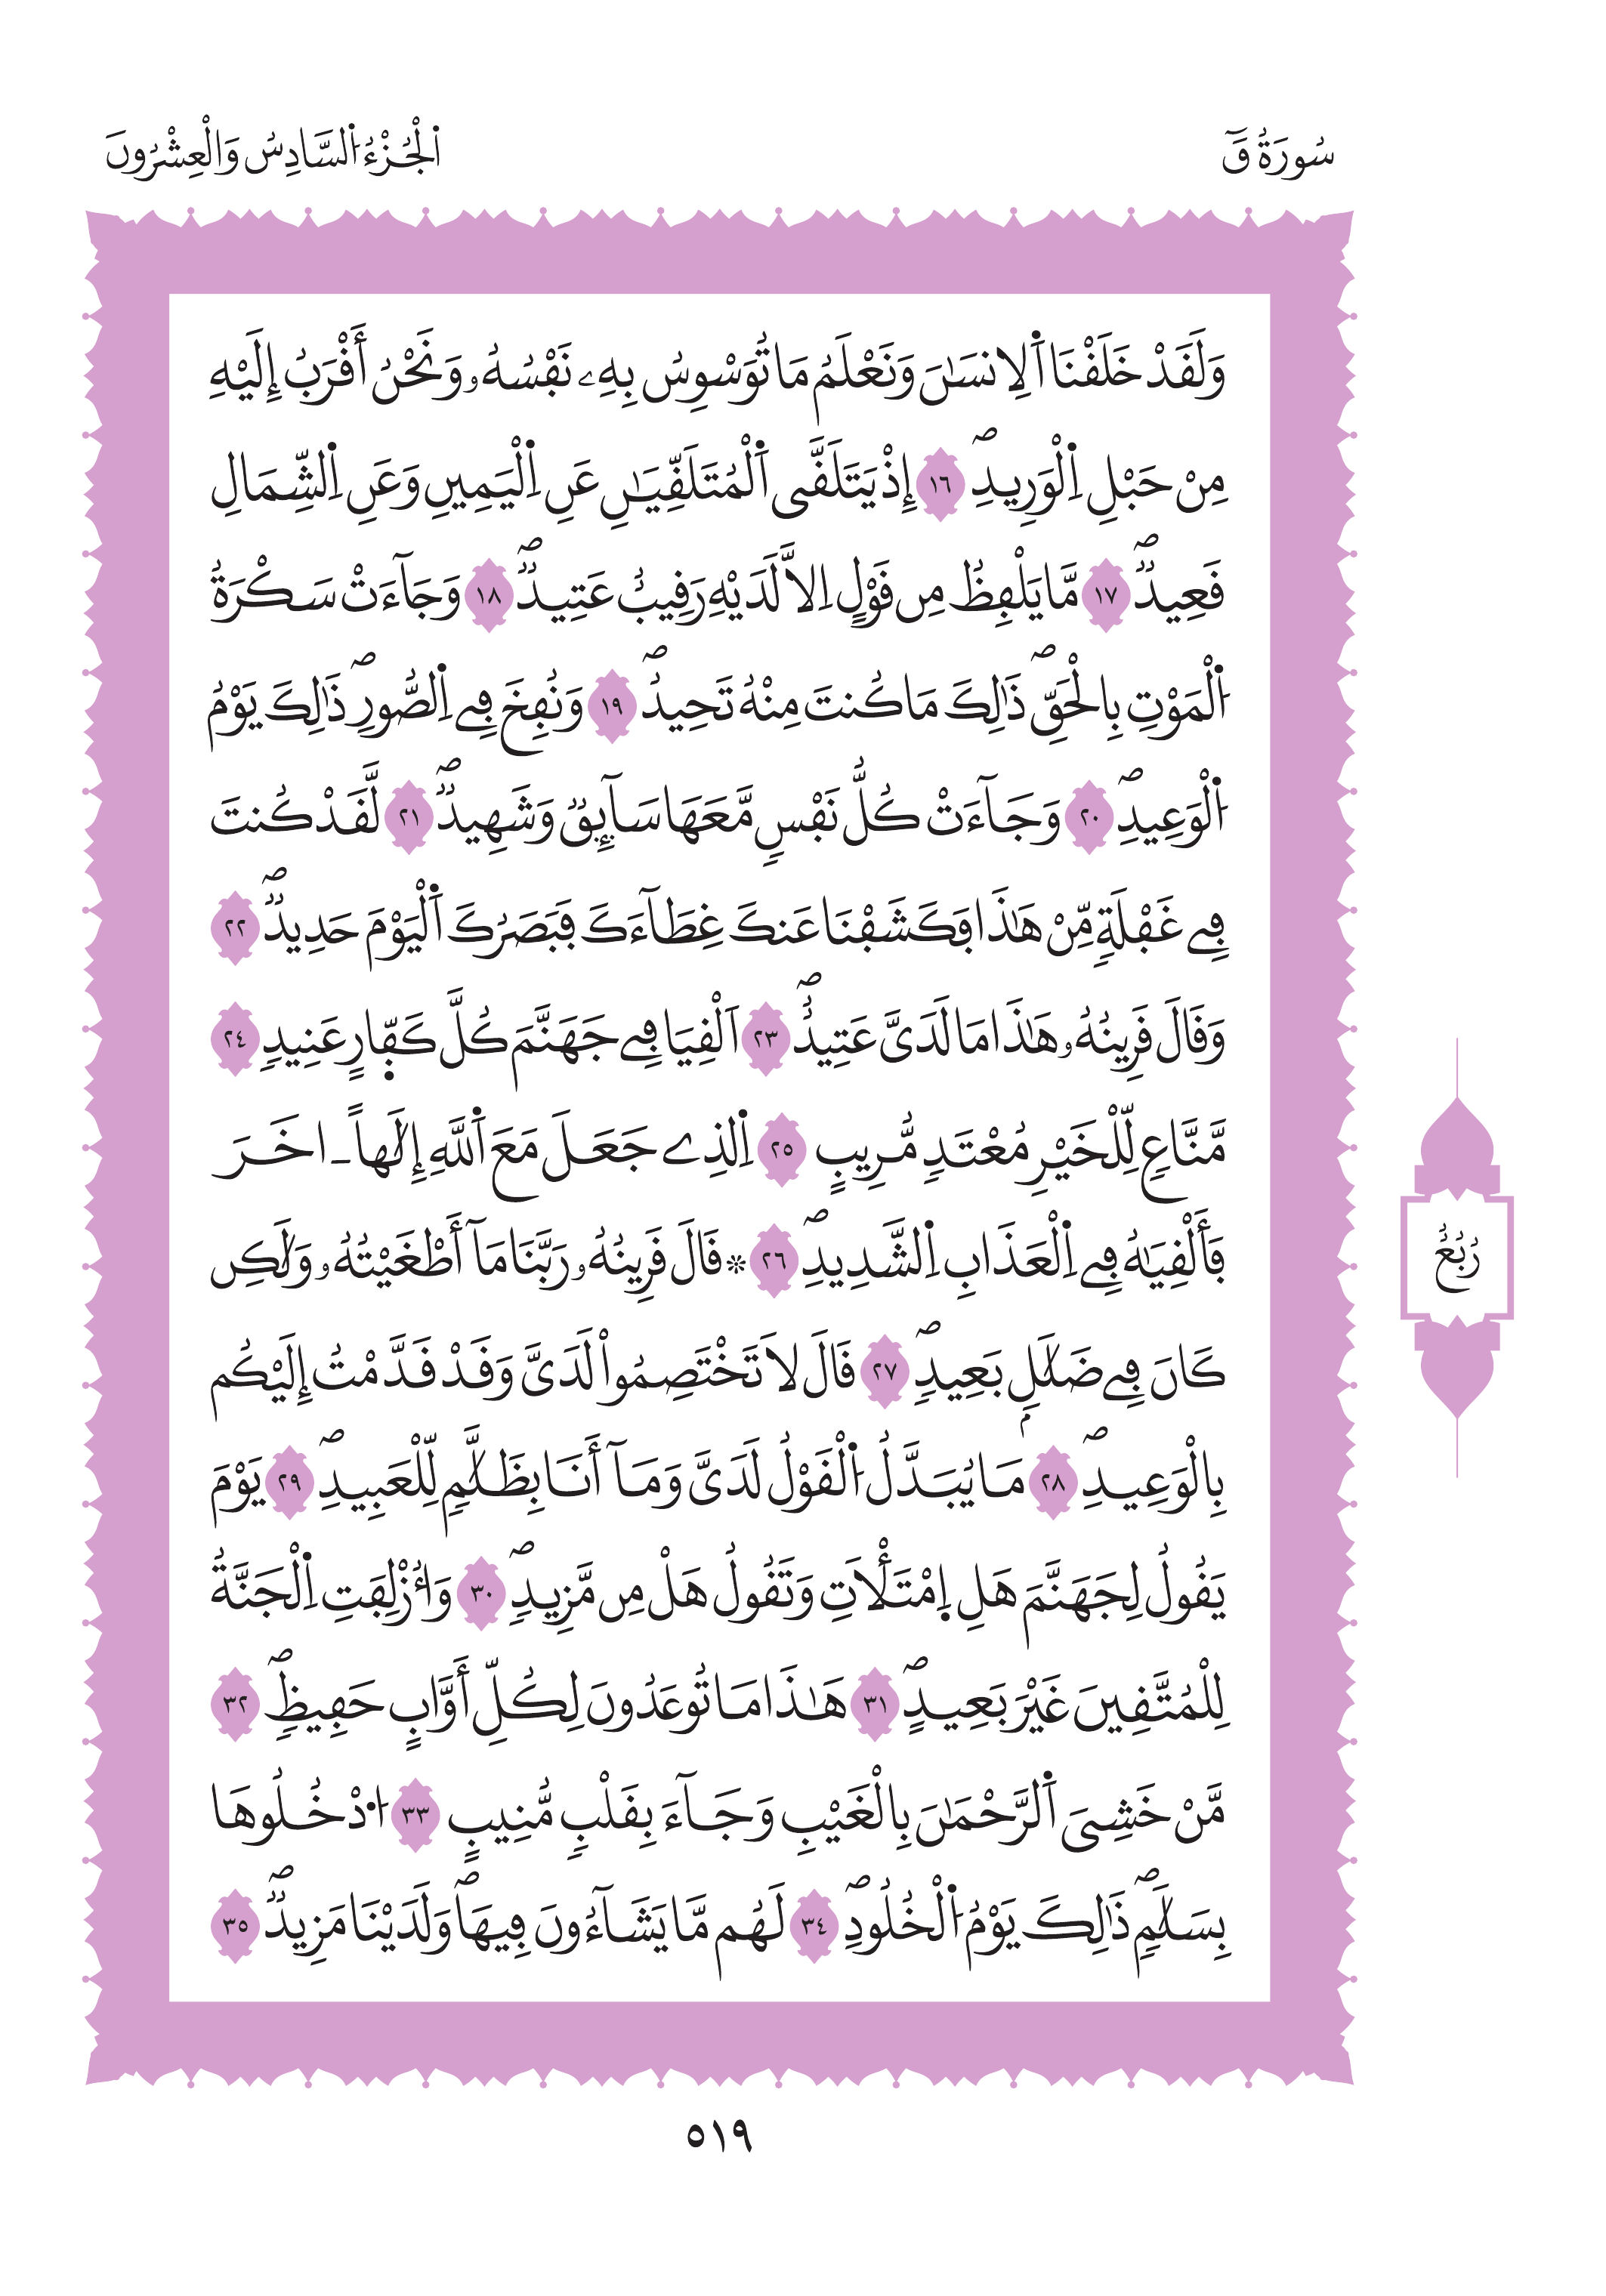 سُورَةُ قَٓ
اَ۬لْجُزْءُ اُ۬لسَّادِسُ وَالْعِشْرُونَ
وَلَقَدْ خَلَقْنَا اَ۬لِانسَٰنَ وَنَعْلَمُ مَا تُوَسْوِسُ بِهِۦ نَفْسُهُۥ وَنَحْنُ أَقْرَبُ إِلَيْهِ
مِنْ حَبْلِ اِ۬لْوَرِيدِۖ ١٦ إِذْ يَتَلَقَّى اَ۬لْمُتَلَقِّيَٰنِ عَنِ اِ۬لْيَمِينِ وَعَنِ اِ۬لشِّمَالِ
قَعِيدٞۖ ١٧ مَّا يَلْفِظُ مِن قَوْلٍ اِلَّا لَدَيْهِ رَقِيبٌ عَتِيدٞۖ ١٨ وَجَآءَتْ سَكْرَةُ
اُ۬لْمَوْتِ بِالْحَقِّۖ ذَٰلِكَ مَا كُنتَ مِنْهُ تَحِيدُۖ ١٩ وَنُفِخَ فِے اِ۬لصُّورِۖ ذَٰلِكَ يَوْمُ
اُ۬لْوَعِيدِۖ ٢٠ وَجَآءَتْ كُلُّ نَفْسٖ مَّعَهَا سَآئِقٞ وَشَهِيدٞۖ ٢١ لَّقَدْ كُنتَ
فِے غَفْلَةٖ مِّنْ هَٰذَا فَكَشَفْنَا عَنكَ غِطَآءَكَ فَبَصَرُكَ اَ۬لْيَوْمَ حَدِيدٞۖ ٢٢
وَقَالَ قَرِينُهُۥ هَٰذَا مَا لَدَيَّ عَتِيدٌۖ ٢٣ اَلْقِيَا فِے جَهَنَّمَ كُلَّ كَفّ۪ارٍ عَنِيدٖ ٢٤
مَّنَّاعٖ لِّلْخَيْرِ مُعْتَدٖ مُّرِيبٍ ٢٥ اِ۬لذِے جَعَلَ مَعَ اَ۬للَّهِ إِلَٰهاً ـ اخَرَ
فَأَلْقِيَٰهُ فِے اِ۬لْعَذَابِ اِ۬لشَّدِيدِۖ ٢٦ ۞ قَالَ قَرِينُهُۥ رَبَّنَا مَآ أَطْغَيْتُهُۥ وَلَٰكِن
كَانَ فِے ضَلَٰلِۢ بَعِيدٖۖ ٢٧ قَالَ لَا تَخْتَصِمُواْ لَدَيَّ وَقَدْ قَدَّمْتُ إِلَيْكُم
بِالْوَعِيدِۖ ٢٨ مَا يُبَدَّلُ اُ۬لْقَوْلُ لَدَيَّ وَمَآ أَنَا بِظَلَّٰمٖ لِّلْعَبِيدِۖ ٢٩ يَوْمَ
يَقُولُ لِجَهَنَّمَ هَلِ اِ۪مْتَلَأْتِ وَتَقُولُ هَلْ مِن مَّزِيدٖۖ ٣٠ وَأُزْلِفَتِ اِ۬لْجَنَّةُ
لِلْمُتَّقِينَ غَيْرَ بَعِيدٍۖ ٣١ هَٰذَا مَا تُوعَدُونَ لِكُلِّ أَوَّابٍ حَفِيظٖۖ ٣٢
مَّنْ خَشِيَ اَ۬لرَّحْمَٰنَ بِالْغَيْبِ وَجَآءَ بِقَلْبٖ مُّنِيبٍ ٣٣ اُ۟دْخُلُوهَا
بِسَلَٰمٖۖ ذَٰلِكَ يَوْمُ اُ۬لْخُلُودِۖ ٣٤ لَهُم مَّا يَشَآءُونَ فِيهَاۖ وَلَدَيْنَا مَزِيدٞۖ ٣٥
رُبُعُ
٥١٩